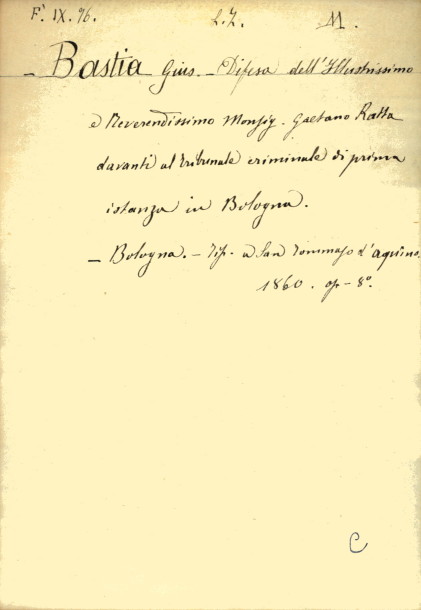 F.' IX. 96. L.Z. M.
- Bastia Gius. - Difesa dell'Illustrissimo
e Reverendissimo Monsig. Gaetano Ratta
davanti al tribunale criminale di prima
istanza in Bologna.
- Bologna. - Tip. a San Tommaso d'Aquino.
1860. op - 8º.
C